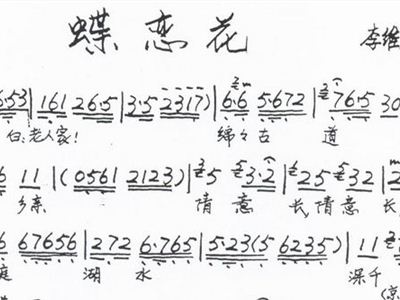 蝶恋花
李维
6·53|161 26·5|3·5 2317)|6·6 5·672|76·5 30
白:老人家! 绵々古 道
6 11|(0561 2123)|5 3·2|25 32|2
乡亲 情 意 长,情意 长
6 67656|272 6·765|5·23(5 6235)|11
庭 湖 水 深千
(京